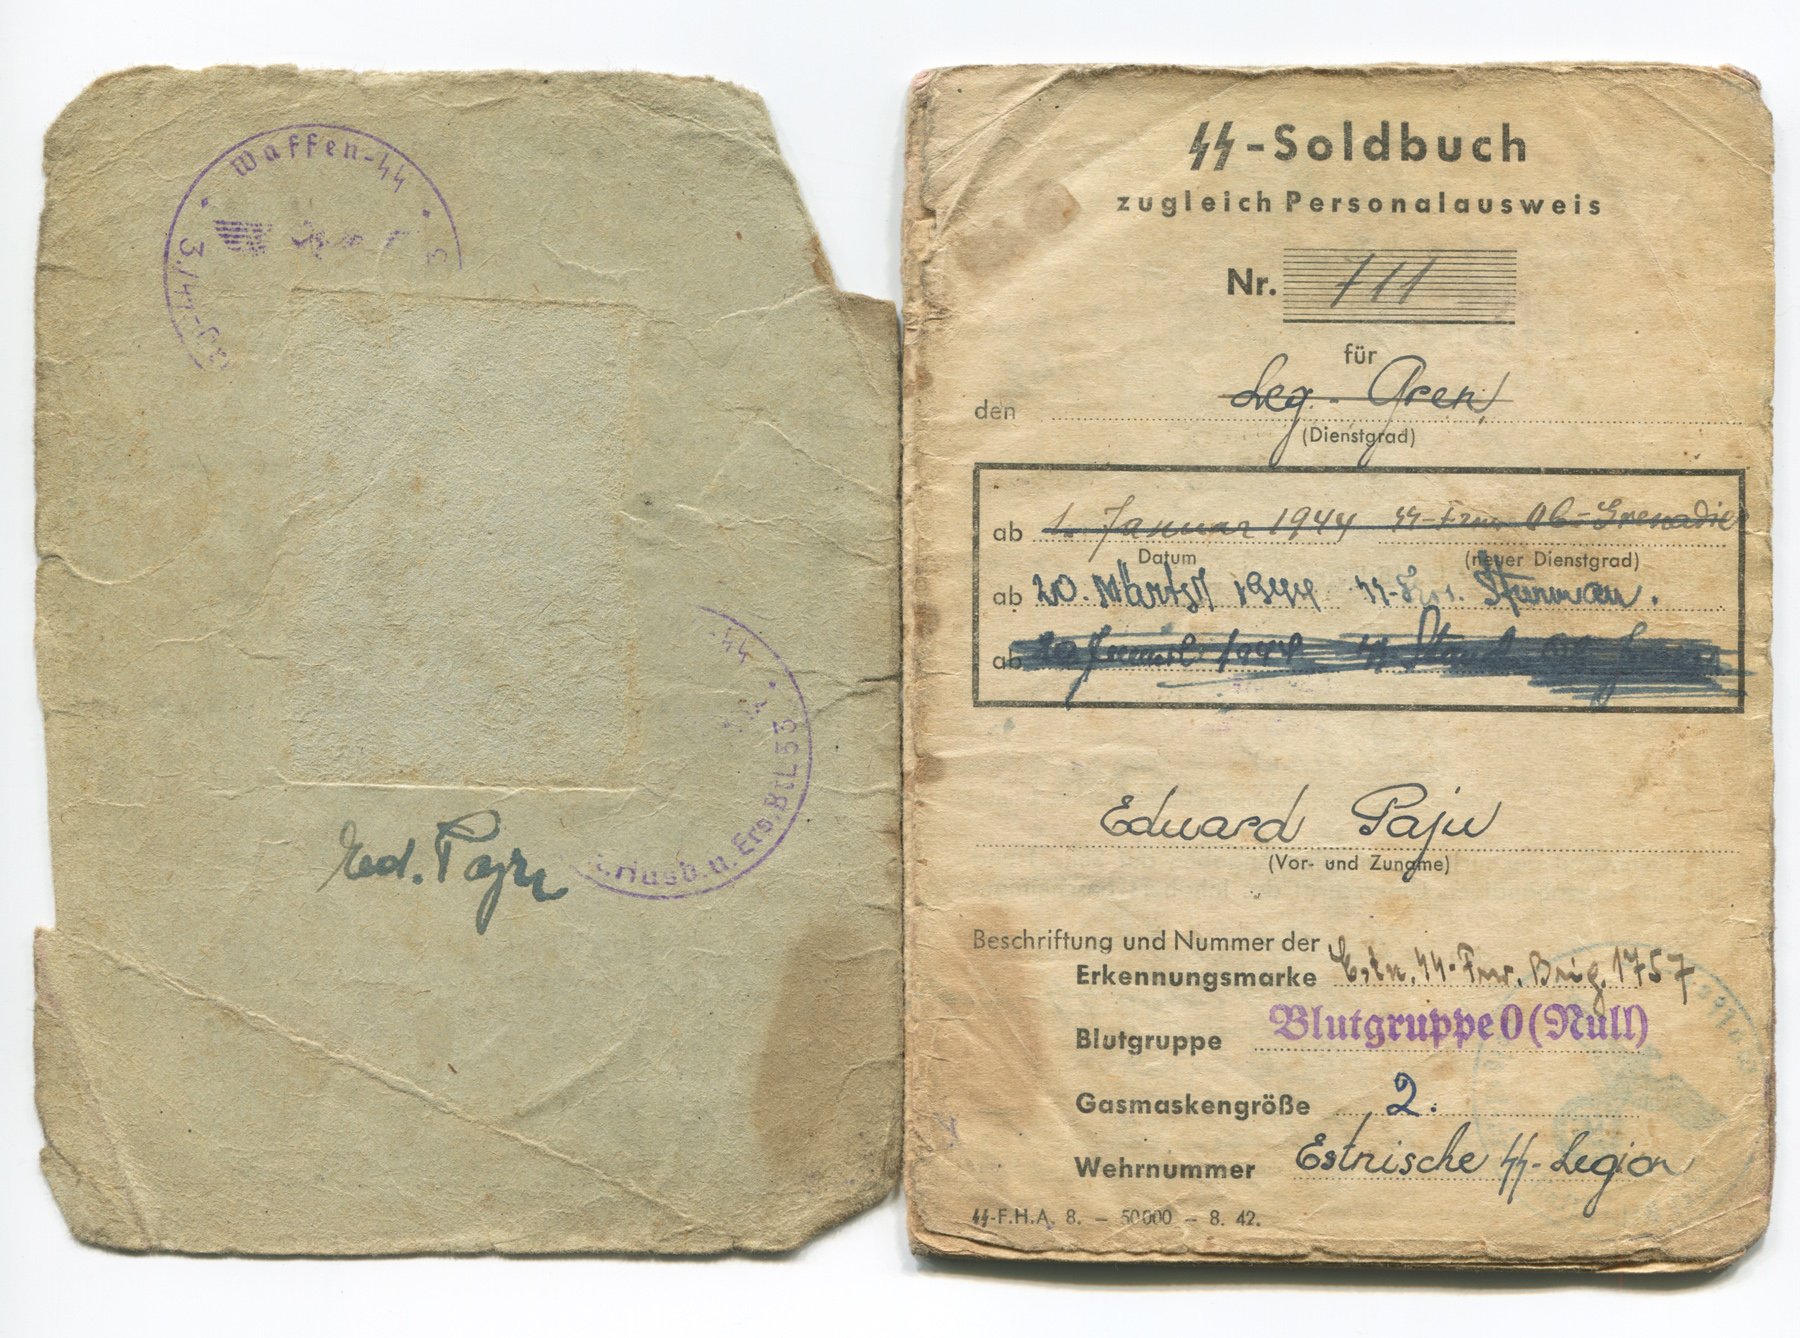 Waffen-SS
3./SS-
Ed. Paju
SS
Ausb. u. Ers. Btl. 33
SS-Soldbuch
zugleich Personalausweis
Nr. 711
für
den Leg.-Gren.
(Dienstgrad)
ab 1. Januar 1944 SS-Frw. Ob-Grenadier
Datum (neuer Dienstgrad)
ab 20. Märtst 1944 SS-Frw. Sturmann.
ab 20 1944 SS
Eduard Paju
(Vor- und Zuname)
Beschriftung und Nummer der
Erkennungsmarke Estn. SS-Frw. Brig. 1757
Blutgruppe Blutgruppe 0 (Null)
Gasmaskengröße 2.
Wehrnummer Estnische SS-Legion
SS-F.H.A. 8. – 50000 – 8. 42.